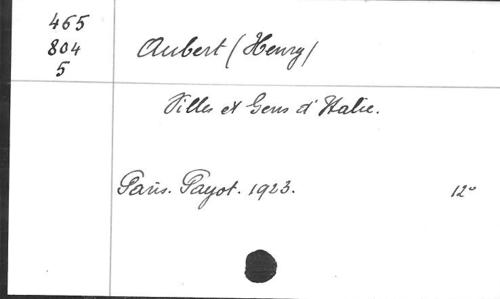 465
804
5
Aubert (Henry)
Villes et Gens d'Italie.
Paris. Payot. 1923. 12°